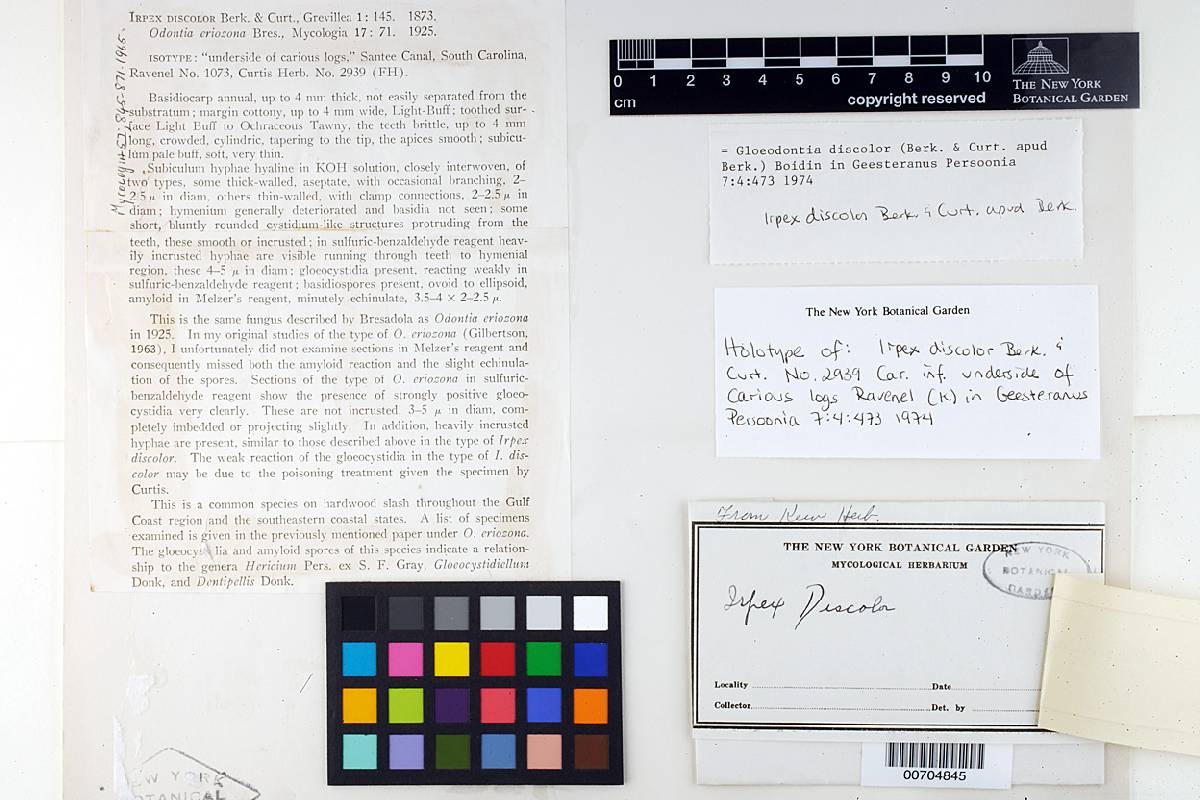 IRPEX DISCOLOR Berk. & Curt., Grevillea 1: 145. 1873.
Odontia eriozona Bres., Mycologia 17: 71. 1925.
ISOTYPE: "underside of carious logs," Santee Canal, South Carolina,
Ravenel No. 1073, Curtis Herb. No. 2939 (FH).
Basidiocarp annual, up to 4 mm thick, not easily separated from the
substratum; margin cottony, up to 4 mm wide, Light-Buff; toothed sur-
face Light Buff to Ochraceous Tawny, the teeth brittle, up to 4 mm
long, crowded, cylindric, tapering to the tip, the apices smooth; subicu-
lum pale buff, soft, very thin.
Subiculum hyphae hyaline in KOH solution, closely interwoven, of
two types, some thick-walled, aseptate, with occasional branching, 2–
2.5 μ in diam, others thin-walled, with clamp connections, 2–2.5 μ in
diam; hymenium generally deteriorated and basidia not seen; some
short, bluntly rounded cystidium-like structures protruding from the
teeth, these smooth or incrusted; in sulfuric-benzaldehyde reagent heav-
ily incrusted hyphae are visible running through teeth to hymenial
region, these 4–5 μ in diam; gloeocystidia present, reacting weakly in
sulfuric-benzaldehyde reagent; basidiospores present, ovoid to ellipsoid,
amyloid in Melzer's reagent, minutely echinulate, 3.5–4 × 2–2.5 μ.
This is the same fungus described by Bresadola as Odontia eriozona
in 1925. In my original studies of the type of O. eriozona (Gilbertson,
1963), I unfortunately did not examine sections in Melzer's reagent and
consequently missed both the amyloid reaction and the slight echinula-
tion of the spores. Sections of the type of O. eriozona in sulfuric-
benzaldehyde reagent show the presence of strongly positive gloeo-
cystidia very clearly. These are not incrusted 3–5 μ in diam, com-
pletely imbedded or projecting slightly. In addition, heavily incrusted
hyphae are present, similar to those described above in the type of Irpex
discolor. The weak reaction of the gloeocystidia in the type of I. dis-
color may be due to the poisoning treatment given the specimen by
Curtis.
This is a common species on hardwood slash throughout the Gulf
Coast region and the southeastern coastal states. A list of specimens
examined is given in the previously mentioned paper under O. eriozona.
The gloeocystidia and amyloid spores of this species indicate a relation-
ship to the genera Hericium Pers. ex S. F. Gray, Gloeocystidiellum
Donk, and Dentipellis Donk.
Mycologia 57: 845-871. 1965.
0 1 2 3 4 5 6 7 8 9 10
cm
copyright reserved
THE NEW YORK
BOTANICAL GARDEN
= Gloeodontia discolor (Berk. & Curt. apud
Berk.) Boidin in Geesteranus Persoonia
7:4:473 1974
Irpex discolor Berk. & Curt. apud Berk.
The New York Botanical Garden
Holotype of: Irpex discolor Berk. &
Curt. No. 2939 Car. inf. underside of
Carious logs Ravenel (K) in Geesteranus
Persoonia 7:4:473 1974
From Kew Herb.
THE NEW YORK BOTANICAL GARDEN
MYCOLOGICAL HERBARIUM
NEW YORK
BOTANICAL
GARDEN
Irpex Discolor
Locality
Date
Collector
Det. by
00704845
NEW YORK
BOTANICAL